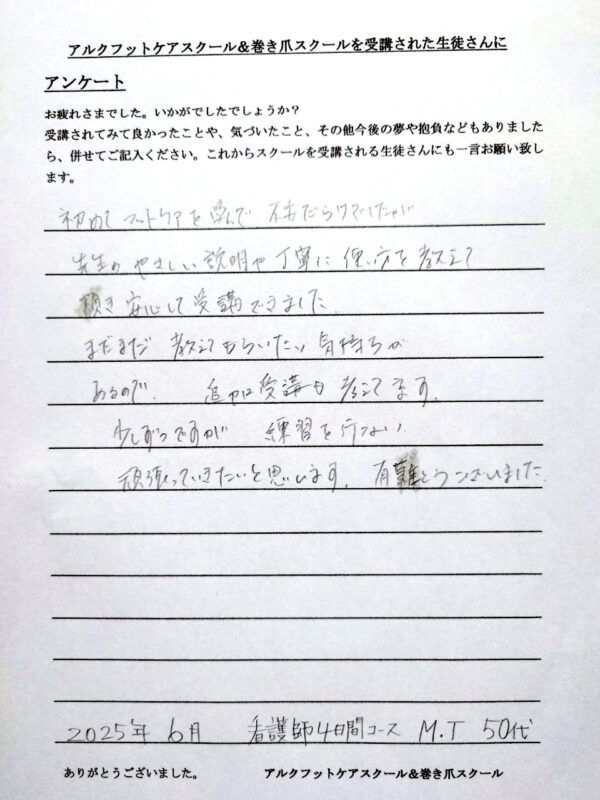 アルクフットケアスクール＆巻き爪スクールを受講された生徒さんに
アンケート
お疲れさまでした。いかがでしたでしょうか？
受講されてみて良かったことや、気づいたこと、その他今後の夢や抱負などもありました
ら、併せてご記入ください。これからスクールを受講される生徒さんにも一言お願い致し
ます。
初めてフットケアを学んで 不安だらけでしたが
先生の やさしい 説明や 丁寧に 使い方を 教えて
頂き 安心して 受講できました。
まだまだ 教えてもらいたい 気持ちが
あるので、 追加受講も 考えてます。
少しずつですが 練習を行ない
頑張っていきたいと思います。 有難とうございました
2025年 6月 看護師4日間コース M.T 50代
ありがとうございました。 アルクフットケアスクール＆巻き爪スクール